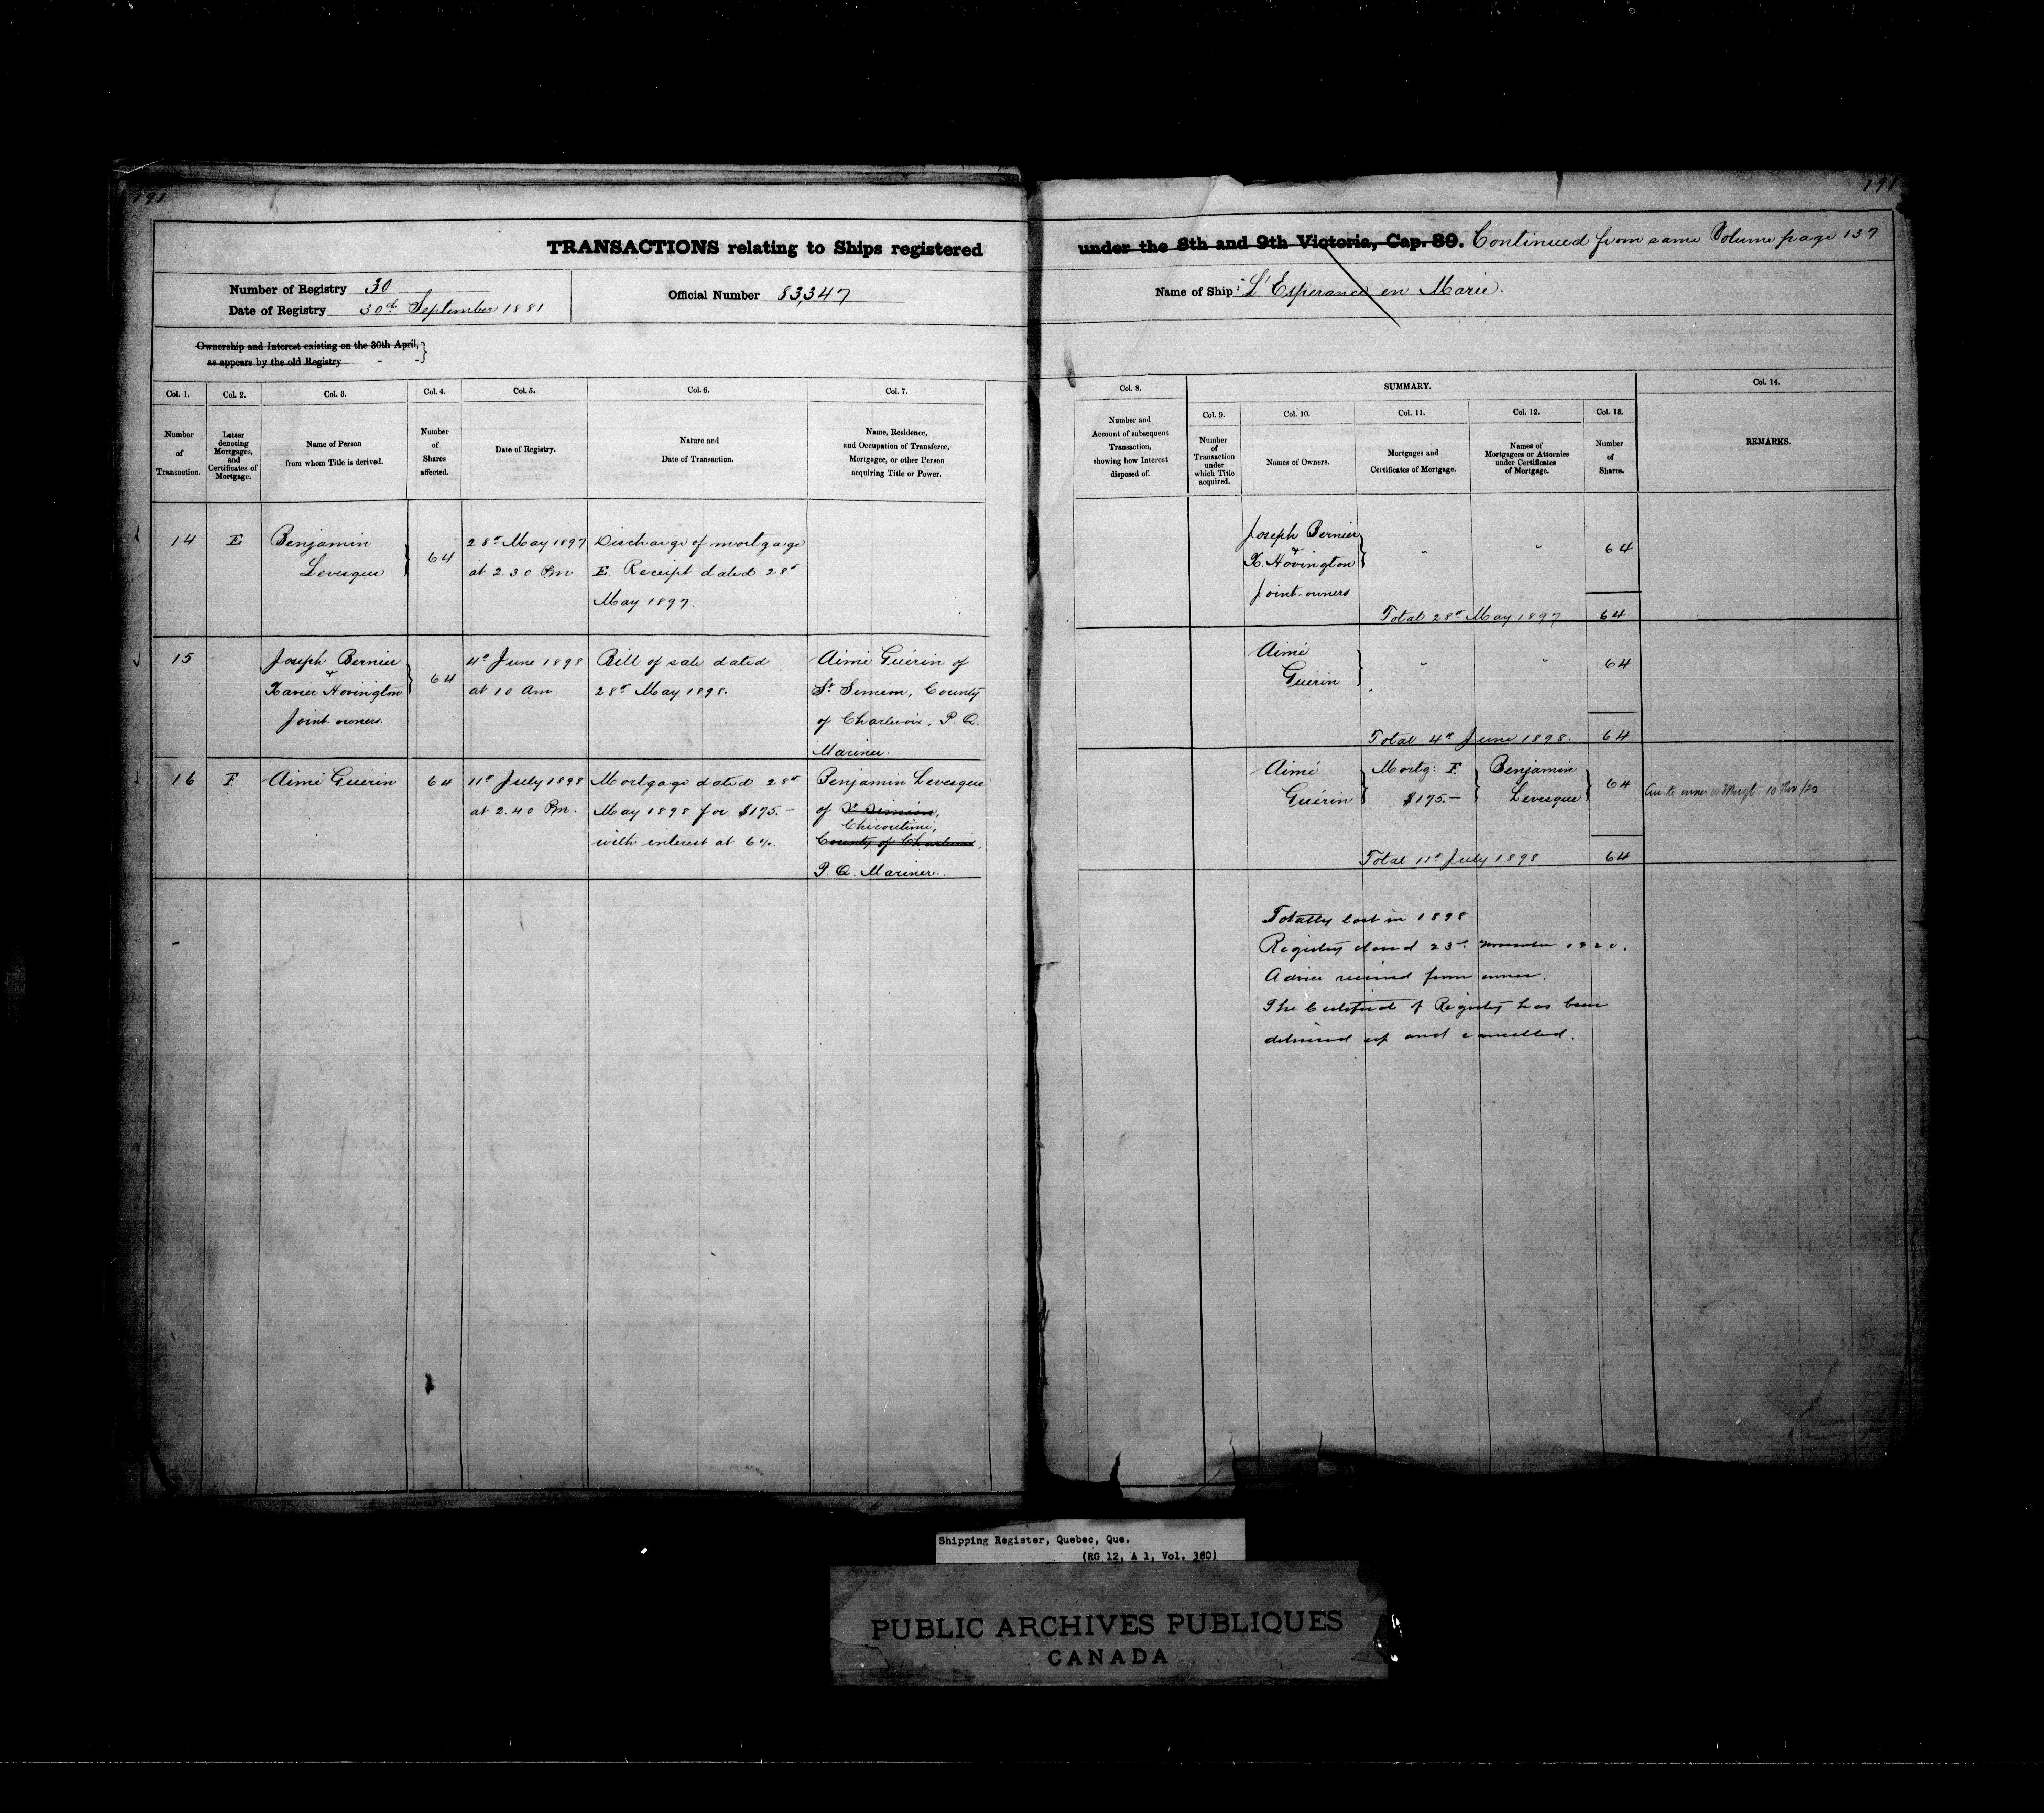 191
191
TRANSACTIONS relating to Ships registered under the 8th and 9th Victoria, Cap. 89. Continued from same Volume page 137
Number of Registry 30
Date of Registry 30th September 1881
Official Number 83,347
Name of Ship: L'Esperance en Marie.
Ownership and Interest existing on the 30th April,
as appears by the old Registry - -
Col. 1.
Number
of
Transaction.
Col. 2.
Letter
denoting
Mortgages,
and
Certificates of
Mortgage.
Col. 3.
Name of Person
from whom Title is derived.
Col. 4.
Number
of
Shares
affected.
Col. 5.
Date of Registry.
Col. 6.
Nature and
Date of Transaction.
Col. 7.
Name, Residence,
and Occupation of Transferee,
Mortgagee, or other Person
acquiring Title or Power.
Col. 8.
Number and
Account of subsequent
Transaction,
showing how Interest
disposed of.
SUMMARY.
Col. 9.
Number
of
Transaction
under
which Title
acquired.
Col. 10.
Names of Owners.
Col. 11.
Mortgages and
Certificates of Mortgage.
Col. 12.
Names of
Mortgagees or Attornies
under Certificates
of Mortgage.
Col. 13.
Number
of
Shares.
Col. 14.
REMARKS.
14
E
Benjamin
Levesque
64
28th May 1897
at 2.30 Pm
Discharge of mortgage
E. Receipt dated 28th
May 1897.
Joseph Bernier
&
X. Hovington
Joint owners
" "
64
Total 28th May 1897 64
15
Joseph Bernier
&
Xavier Hovington
Joint owners.
64
4th June 1898
at 10 Am
Bill of sale dated
28th May 1898.
Aimé Guérin of
St Simeon, County
of Charlevoix, P. Q.
Mariner.
Aimé
Guérin
" "
64
Total 4th June 1898. 64
16
F
Aimé Guérin
64
11th July 1898
at 2.40 Pm.
Mortgage dated 28th
May 1898 for $175.-
with interest at 6%.
Benjamin Levesque
of St Simeon,
Chicoutimi,
County of Charlevoix,
P. Q. Mariner.
Aimé
Guérin
Mortg: F.
$175.-
Benjamin
Levesque
64
to owner & Mortgt. 10 Nov/20
Total 11th July 1898 64
Totally lost in 1898
Registry closed 23rd November 1920.
Advice received from owner.
The Certificate of Registry has been
delivered up and cancelled.
Shipping Register, Quebec, Que.
(RG 12, A 1, Vol. 380)
PUBLIC ARCHIVES PUBLIQUES
CANADA